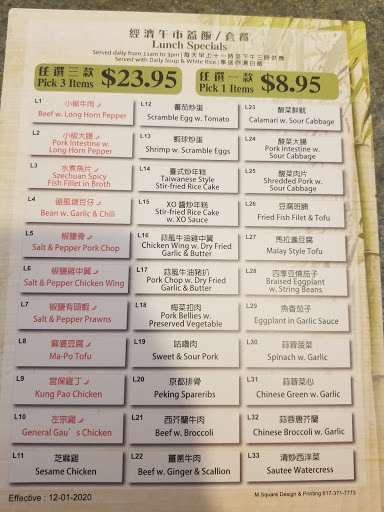 經濟午市蓋飯/套餐
Lunch Specials
Served daily from 11am to 3pm | 每天早上十一時至下午三時供應
Served with Daily Soup & White Rice | 奉送例湯白飯
任選三款
Pick 3 Items
$23.95
任選一款
Pick 1 Items
$8.95
L1
小椒牛肉
Beef w. Long Horn Pepper
L2
小椒大腸
Pork Intestine w.
Long Horn Pepper
L3
水煮魚片
Szechuan Spicy
Fish Fillet in Broth
L4
避風塘豆仔
Bean w. Garlic & Chili
L5
椒鹽骨
Salt & Pepper Pork Chop
L6
椒鹽雞中翼
Salt & Pepper Chicken Wing
L7
椒鹽有頭蝦
Salt & Pepper Prawns
L8
麻婆豆腐
Ma-Po Tofu
L9
宮保雞丁
Kung Pao Chicken
L10
左宗雞
General Gau's Chicken
L11
芝麻雞
Sesame Chicken
L12
蕃茄炒蛋
Scramble Egg w. Tomato
L13
蝦球炒蛋
Shrimp w. Scramble Eggs
L14
臺式炒年糕
Taiwanese Style
Stir-fried Rice Cake
L15
XO 醬炒年糕
Stir-fried Rice Cake
w. XO Sauce
L16
蒜風牛油雞中翼
Chicken Wing w. Dry Fried
Garlic & Butter
L17
蒜風牛油豬扒
Pork Chop w. Dry Fried
Garlic & Butter
L18
梅菜扣肉
Pork Bellies w.
Preserved Vegetable
L19
咕嚕肉
Sweet & Sour Pork
L20
京都排骨
Peking Spareribs
L21
西芥蘭牛肉
Beef w. Broccoli
L22
薑蔥牛肉
Beef w. Ginger & Scallion
L23
酸菜鮮魷
Calamari w. Sour Cabbage
L24
酸菜大腸
Pork Intestine w.
Sour Cabbage
L25
酸菜肉片
Shredded Pork w.
Sour Cabbage
L26
豆腐斑腩
Fried Fish Filet & Tofu
L27
馬拉盞豆腐
Malay Style Tofu
L28
四季豆燒茄子
Braised Eggplant
w. String Beans
L29
魚香茄子
Eggplant in Garlic Sauce
L30
蒜蓉菠菜
Spinach w. Garlic
L31
蒜蓉菜心
Chinese Green w. Garlic
L32
蒜蓉唐芥蘭
Chinese Broccoli w. Garlic
L33
清炒西洋菜
Sautee Watercress
Effective : 12-01-2020
M Square Design & Printing 617-371-7773